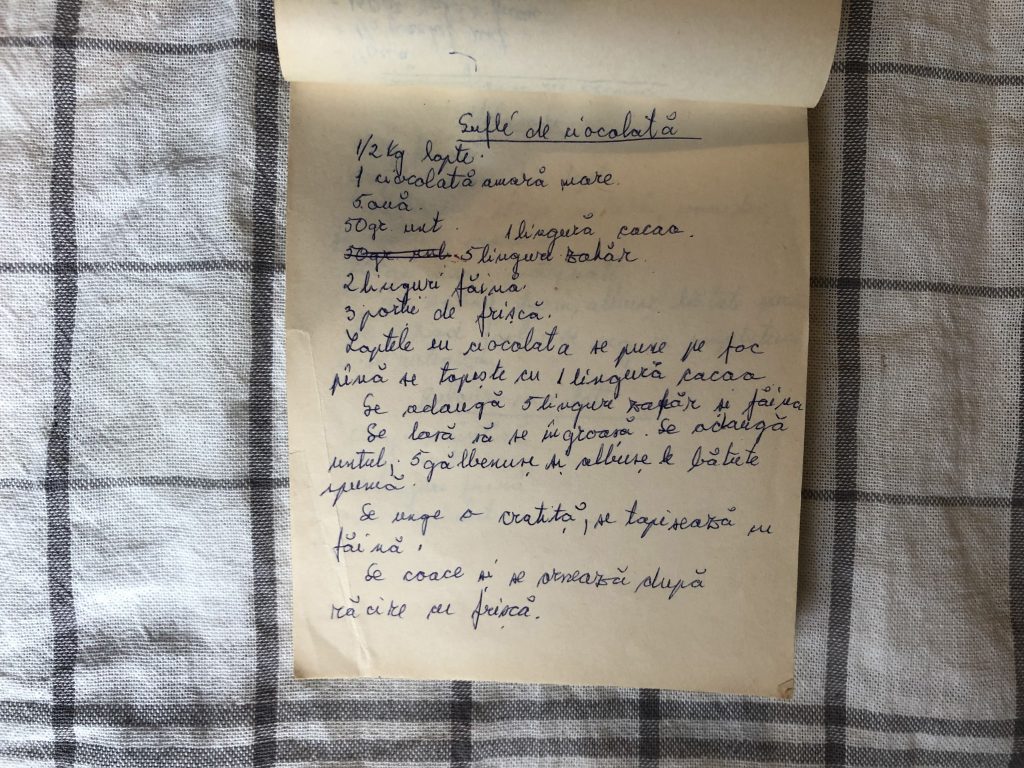 Suflé de ciocolată
1/2 Kg lapte.
1 ciocolată amară mare.
5 ouă.
50gr. unt. 1 lingură cacao.
50gr unt. 5 linguri zahăr.
2 linguri făină.
3 porții de frișcă.
Laptele cu ciocolata se pune pe foc
pînă se topește cu 1 lingură cacao
Se adaugă 5 linguri zahăr și făina
Se lasă să se îngroașă. Se adaugă
untul, 5 gălbenușe și albușele bătute
spumă.
Se unge o cratiță, se tapisează cu
făină.
Se coace și se ornează după
răcire cu frișcă.